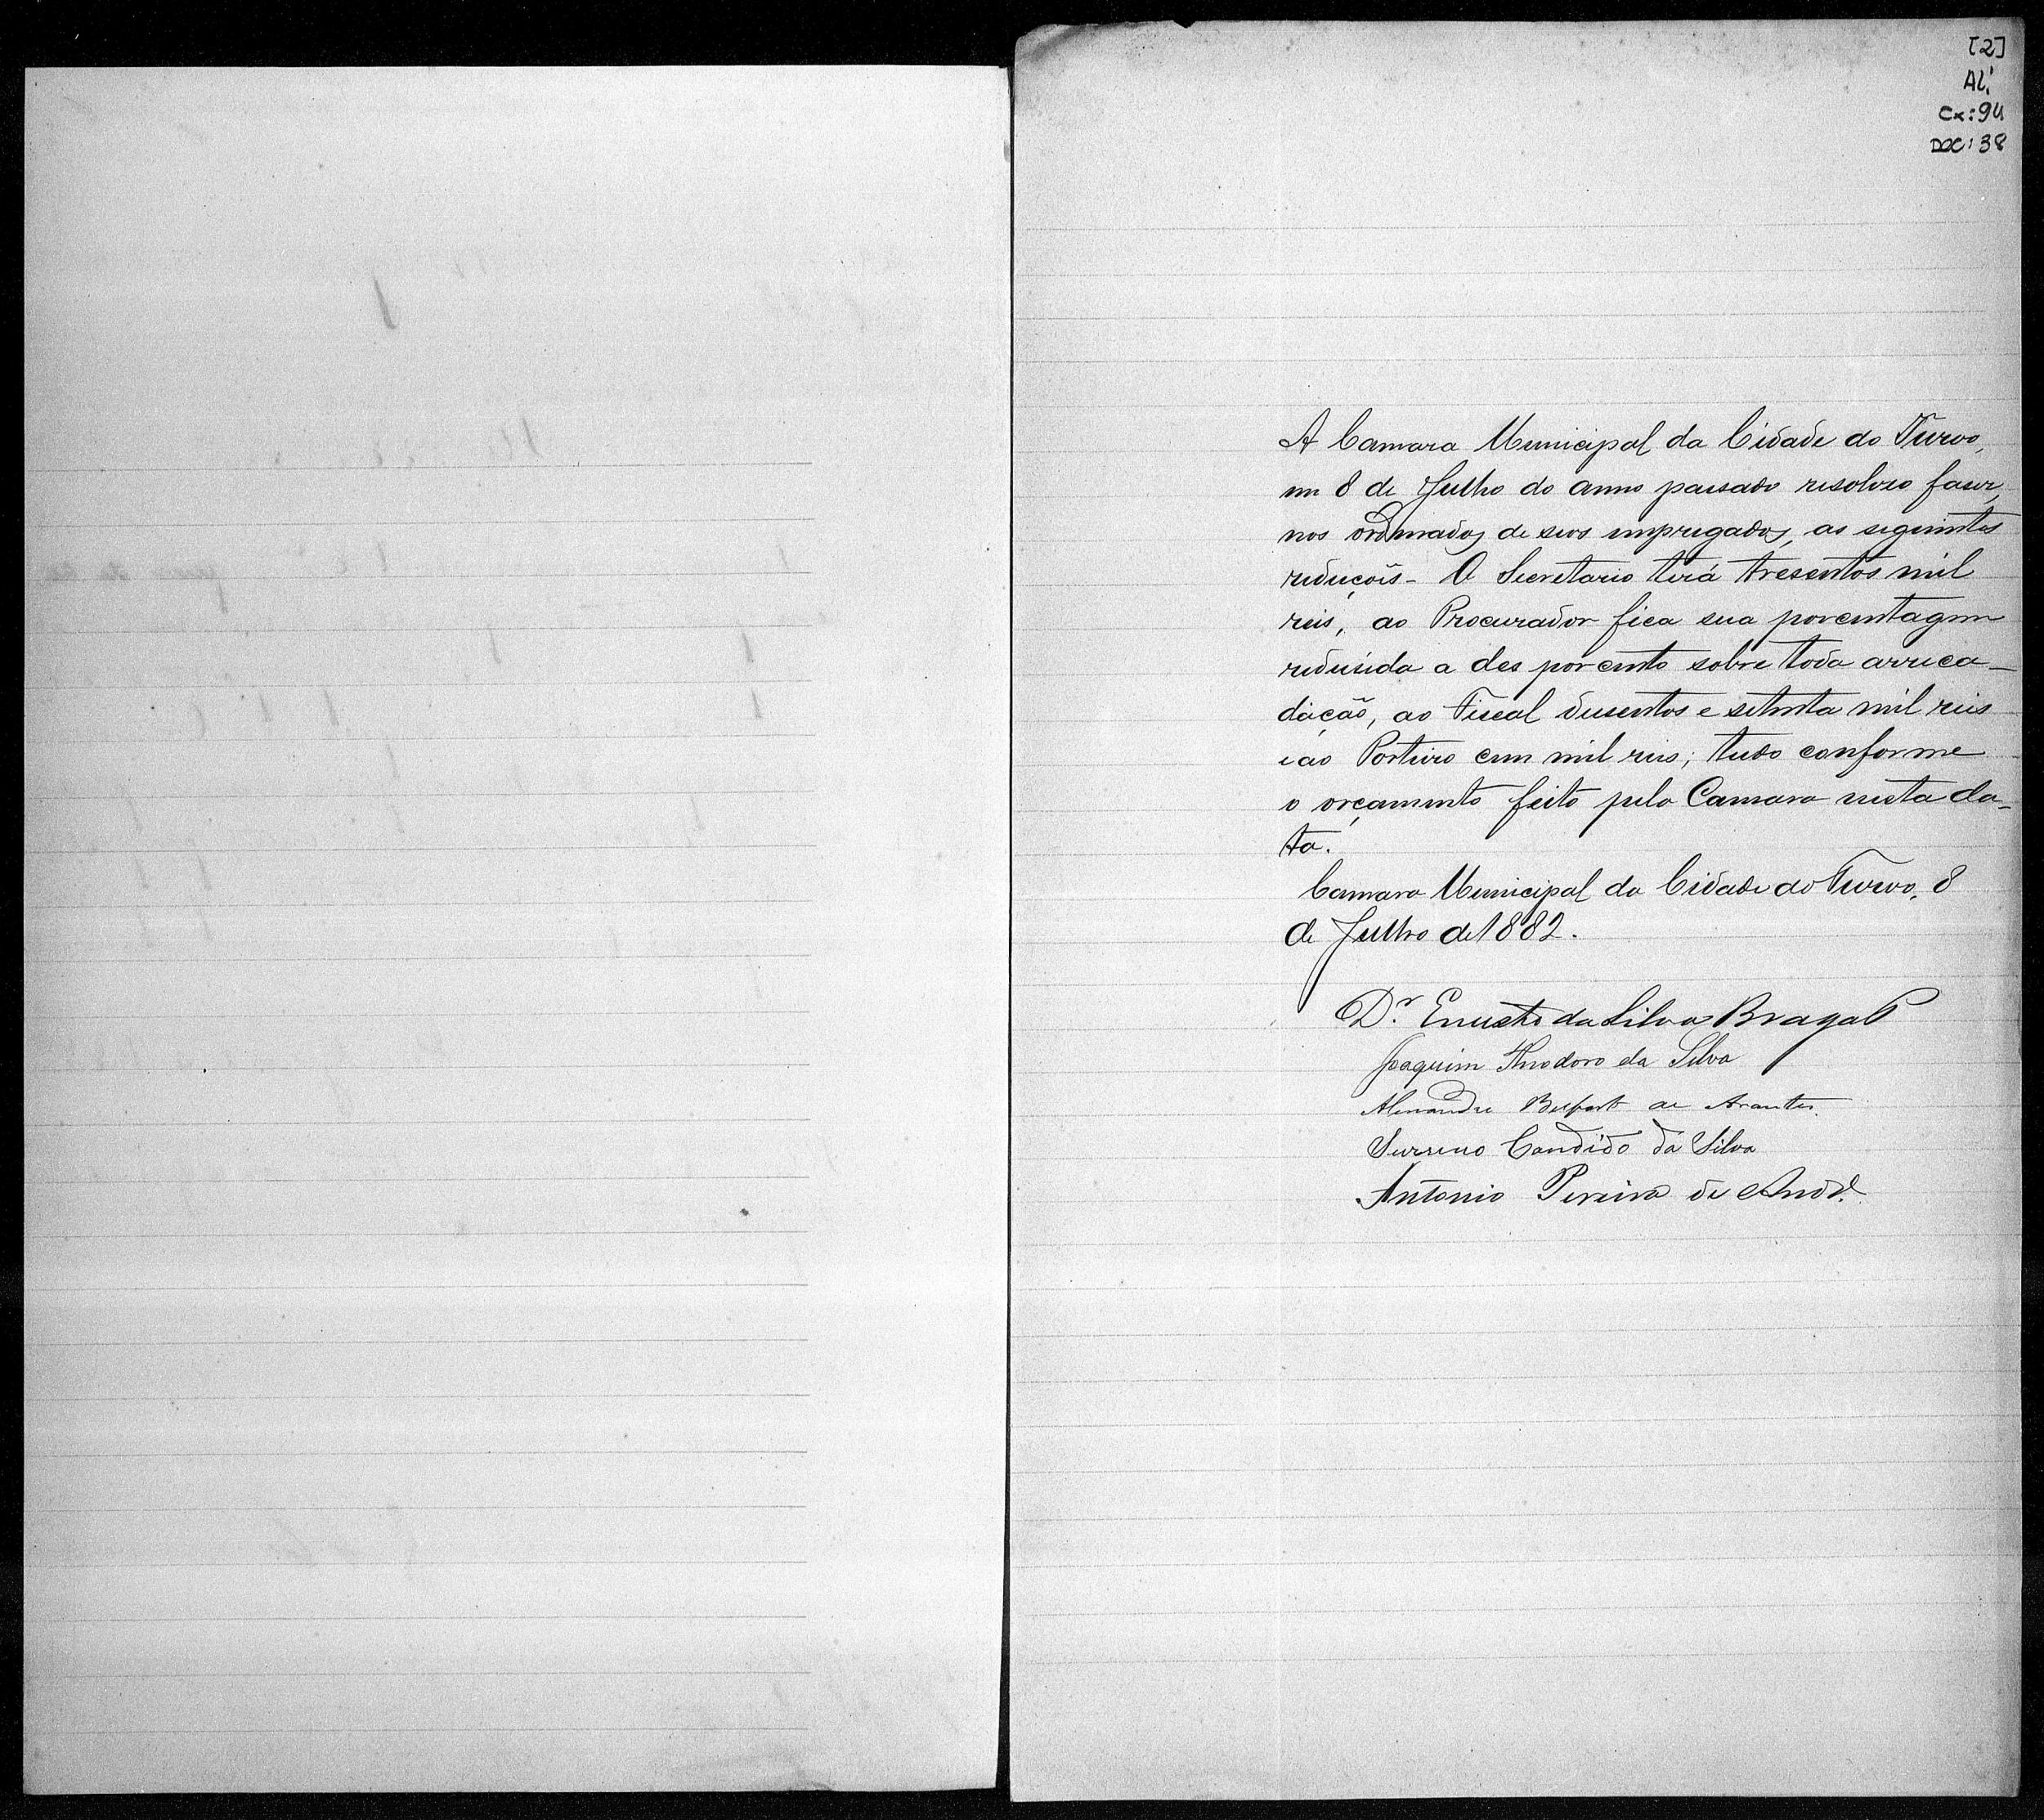 [2]
AL:
Cx: 94
DOC: 38
A Camara Municipal da Cidade do Turvo,
em 8 de Julho do anno passado resolveo faser,
nos ordenados de seos empregados, as seguintes
reducçoẽs - O Secretario terá tresentos mil
reis, ao Procurador fica sua porcentagem
redusida a des por cento sobre toda arreca-
dação, ao Fiscal dusentos e setenta mil reis
e ao Porteiro cem mil reis; tudo conforme
o orçamento feito pela Camara nesta da-
ta.
Camara Municipal da Cidade do Turvo, 8
de Julho de 1882.
D.r Ernesto da Silva Braga
Joaquim Theodoro da Silva
Alexandre Belfort de Arantes
Candido da Silva
Antonio Pereira de And.e